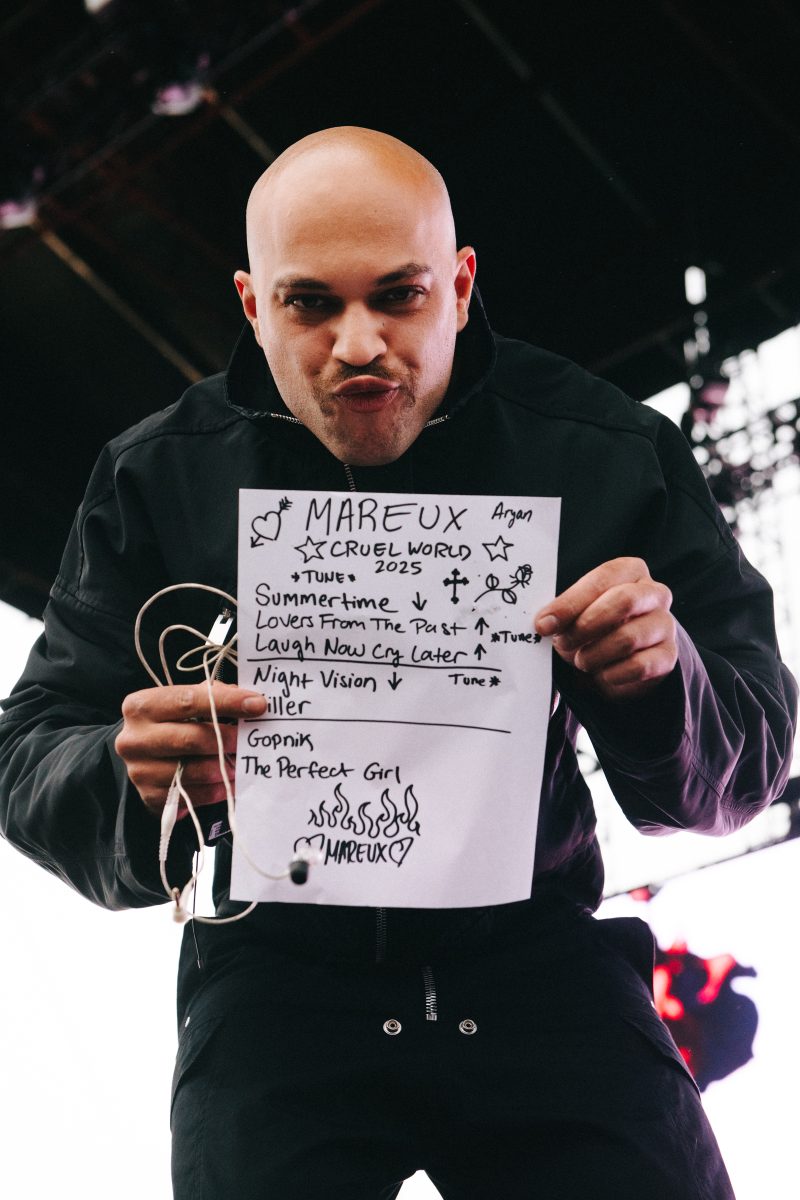 MAREUX Aryan
CRUEL WORLD
2025
*TUNE*
Summertime ↓
Lovers From The Past ↑
*Tune*
Laugh Now Cry Later ↑
Night Vision ↓ Tune*
Killer
Gopnik
The Perfect Girl
MAREUX